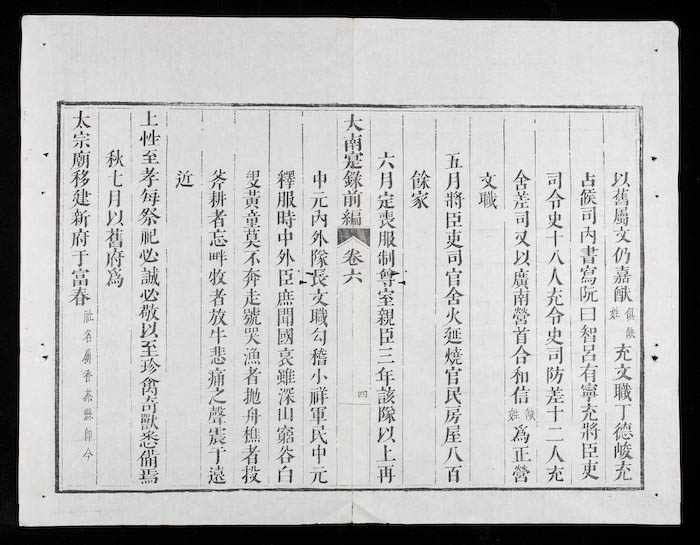 以舊屬文仍嘉猷俱缺姓充文職丁德峻充
占候司內書寫阮曰智呂有寧充將臣吏
司令史十八人充令史司防差十二人充
舍差司又以廣南營首合和信缺姓爲正營
文職
五月將臣吏司官舍火延燒官民房屋八百
餘家
六月定喪服制尊室親臣三年該隊以上再
大南寔錄前編 卷六 四
中元內外隊長文職勾稽小祥軍民中元
釋服時中外臣庶聞國哀雖深山窮谷白
叟黃童莫不奔走號哭漁者抛舟樵者投
斧耕者忘畔牧者放牛悲痛之聲震于遠
近
上性至孝每祭祀必誠必敬以至珍禽奇獸悉備焉
秋七月以舊府爲
太宗廟移建新府于富春社名屬香茶縣即今